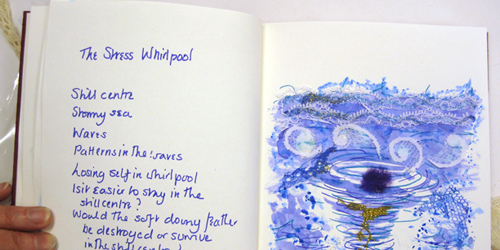 The Stress Whirlpool
Still centre
Stormy sea
Waves
Patterns in the waves
Losing self in whirlpool
Is it easier to stay in the
still centre?
Would the soft downy feather
be destroyed or survive
in the still centre?